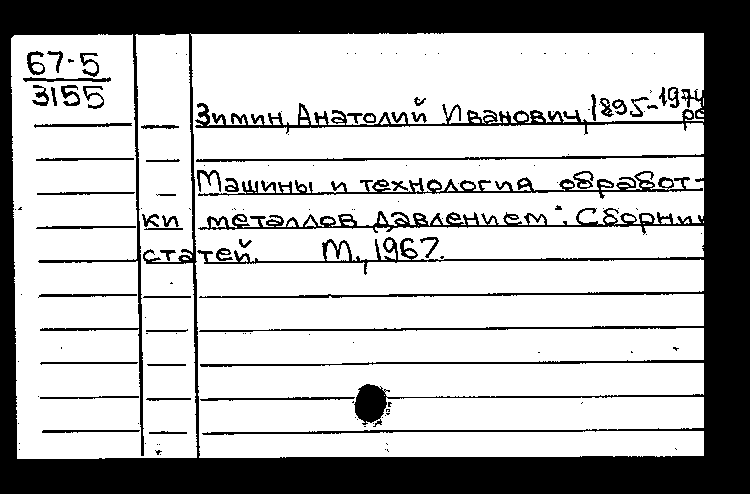 67-5
3155
Зимин, Анатолий Иванович, 1895-1974
ре
Машины и технология обработ-
ки металлов давлением. Сборни
статей. М., 1967.